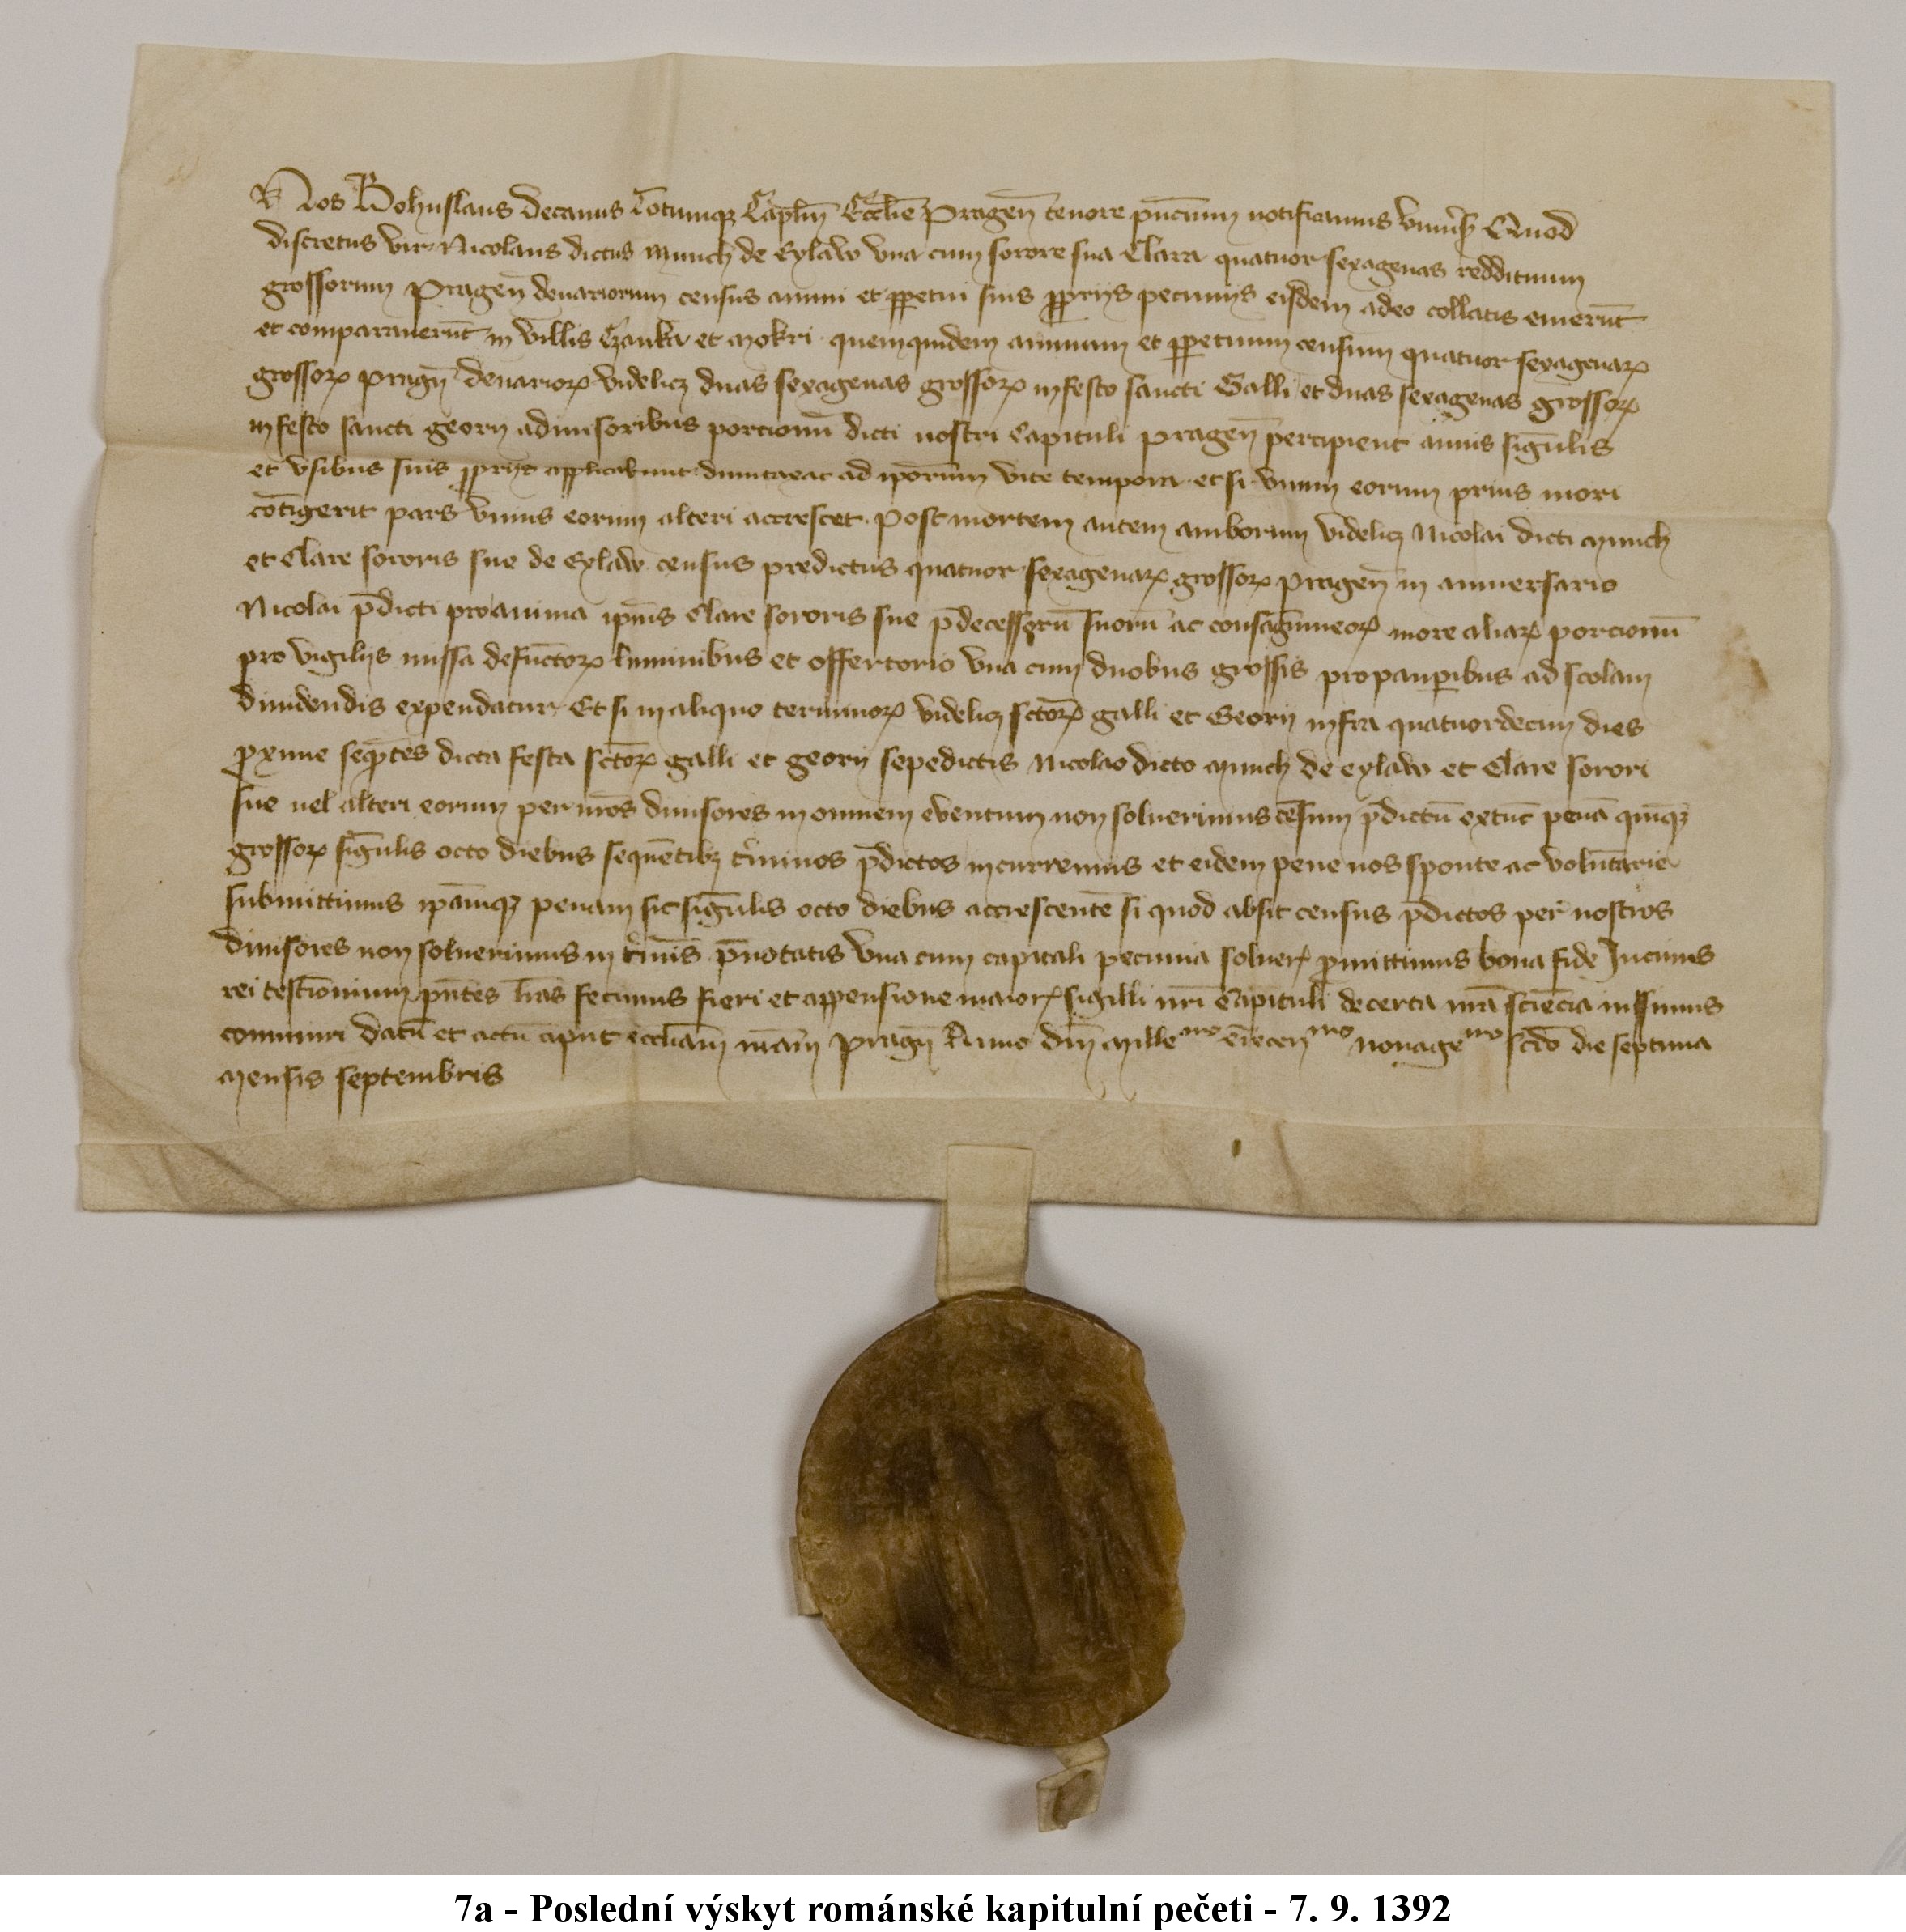 Nos Bohuslaus Decanus Totumq Capłm Ecclie Pragen̄ tenore pn̄cium notificamus vniuſis Quod
discretus vir Nicolaus dictus Munch de Eylaw vna cum sorore sua Clara quatuor sexagenas reddituum
grossorum Pragen̄ denariorum census annui et ꝑpetui suis ꝓprijs pecunijs eisdem adeo collatis emerūt
et compararauerūt in villis Czanka et Mokri quemquidem annuum et ꝑpetuum censum quatuor sexagenaꝝ
grossoꝝ pragn̄ denarioꝝ videlicꝫ duas sexagenas grossoꝝ in festo sancti Galli et duas sexagenas grossoꝝ
in festo sancti georij a diuisoribus porcionū dicti nostri Capituli Pragen̄ percipient annis singulis
et vsibus suis ꝓprijs applicabunt dumtaxat ad iporum vite tempora et si vnum eorum prius mori
cōtigerit pars vnius eorum alteri accrescet Post mortem autem amborum videlicꝫ Nicolai dicti Munch
et Clare sororis sue de Eylaw census predictus quatuor sexagenaꝝ grossoꝝ Pragen̄ in anniuersario
Nicolai p̄dicti pro anima ipius Clare sororis sue p̄decessorū suorū ac consāguineoꝝ more aliaꝝ porcionū
pro vigilijs missa defūctoꝝ luminibus et offertorio vna cum duobus grossis pro pauꝑibus ad scolam
diuidendis expendatur Et si in aliquo terminoꝝ videlicꝫ sctoꝝ galli et Georij infra quatuordecim dies
ꝓxime seqūtes dicta festa sctoꝝ galli et georij sepedictis Nicolao dicto Munch de eylaw et Clare sorori
sue uel alteri eorum per nr̄os diuisores in omnem euentum non soluerimus cēsum p̄dictū extūc penā quīqꝫ
grossoꝝ sīgulis octo diebus sequētibꝫ tīminos p̄dictos incurremus et eidem pene nos sponte ac volūtarie
submittimus ipāmqꝫ penam sic sīgulis octo diebus accrescentē si quod absit census p̄dictos per nostros
diuisores non soluerimus in tīmis p̄notatis vna cum capitali pecunia soluerꝭ ꝓmittimus bona fide In cuius
rei testīonium pn̄tes lr̄as fecimus fieri et appensione maiorꝭ sigilli nr̄i Capituli de certa nr̄a sciēcia iussimus
communiri datū et actū aput eccliam nr̄am Pragn̄ Anno dn̄i Millemo CCCcenmo nonagemo scdo die septima
Mensis septembris
7a - Poslední výskyt románské kapitulní pečeti - 7. 9. 1392